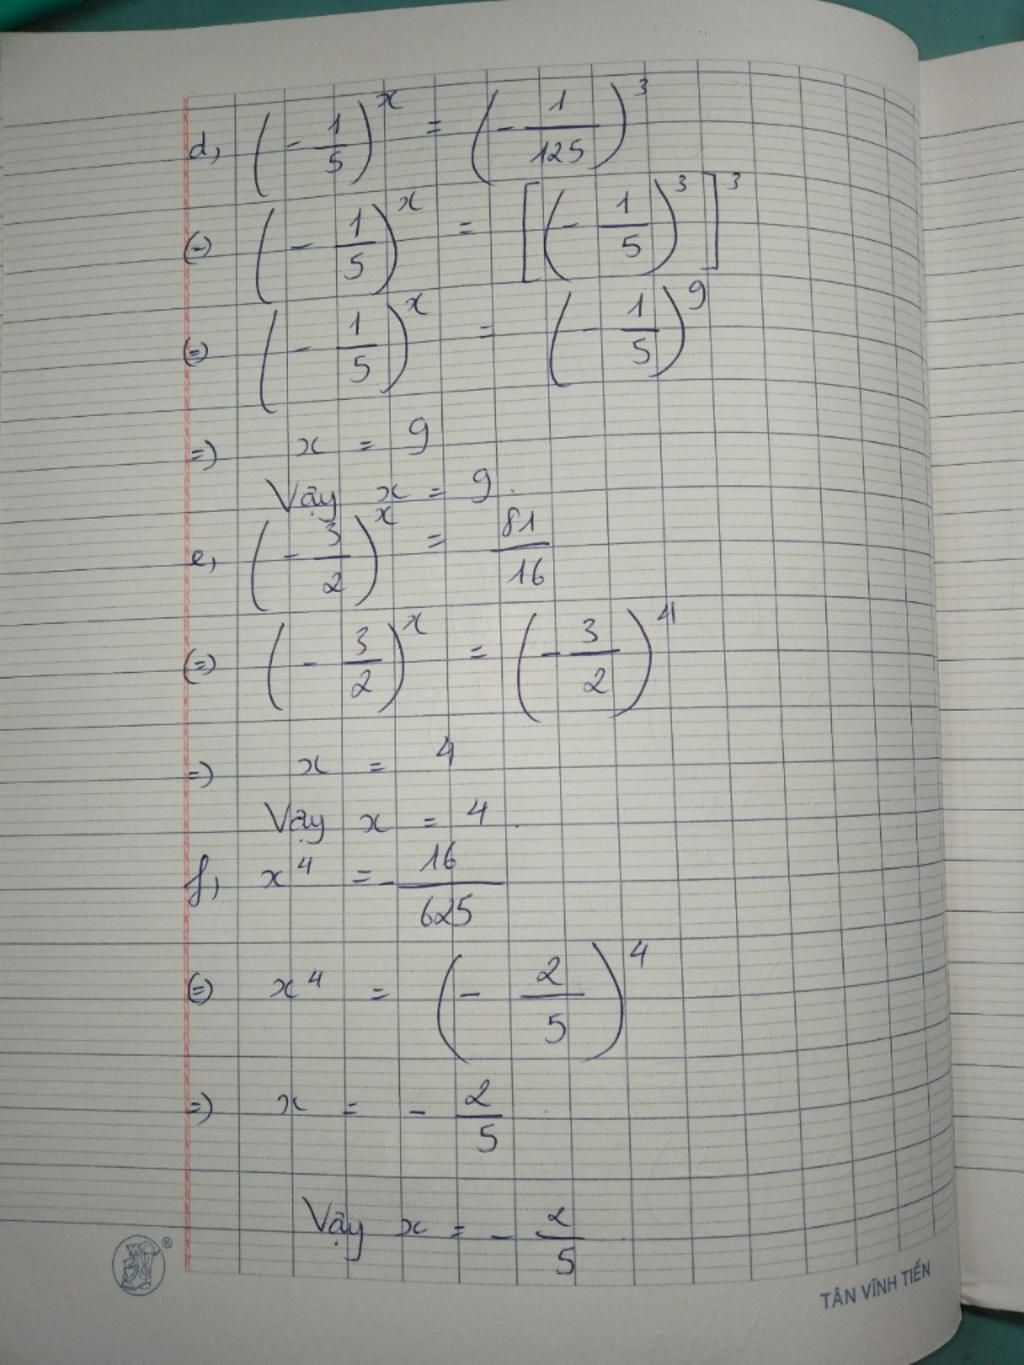 d, (- 1/5)^x = (- 1/125)^3
(=) (- 1/5)^x = [(- 1/5)^3]^3
(=) (- 1/5)^x = (- 1/5)^9
=) x = 9
Vậy x = 9.
e, (- 3/2)^x = 81/16
(=) (- 3/2)^x = (- 3/2)^4
=) x = 4
Vậy x = 4.
f, x^4 = - 16/625
(=) x^4 = (- 2/5)^4
=) x = - 2/5
Vậy x = - 2/5
®
TÂN VĨNH TIẾN